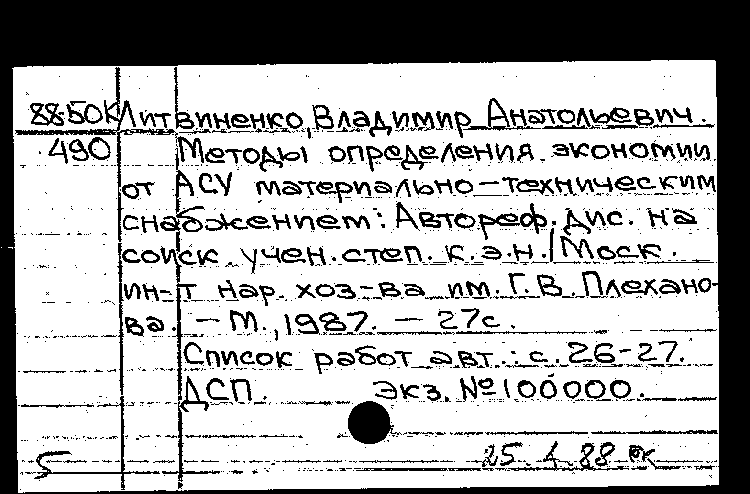 88-50К Литвиненко, Владимир Анатольевич.
490 Методы определения экономии
от АСУ материально-техническим
снабжением: Автореф. дис. на
соиск. учен. степ. к.э.н./Моск.
ин-т нар. хоз-ва им. Г.В. Плехано-
ва. — М., 1987. — 27с.
Список работ авт.: с. 26-27.
ДСП. Экз. №100000.
5 25.4.88